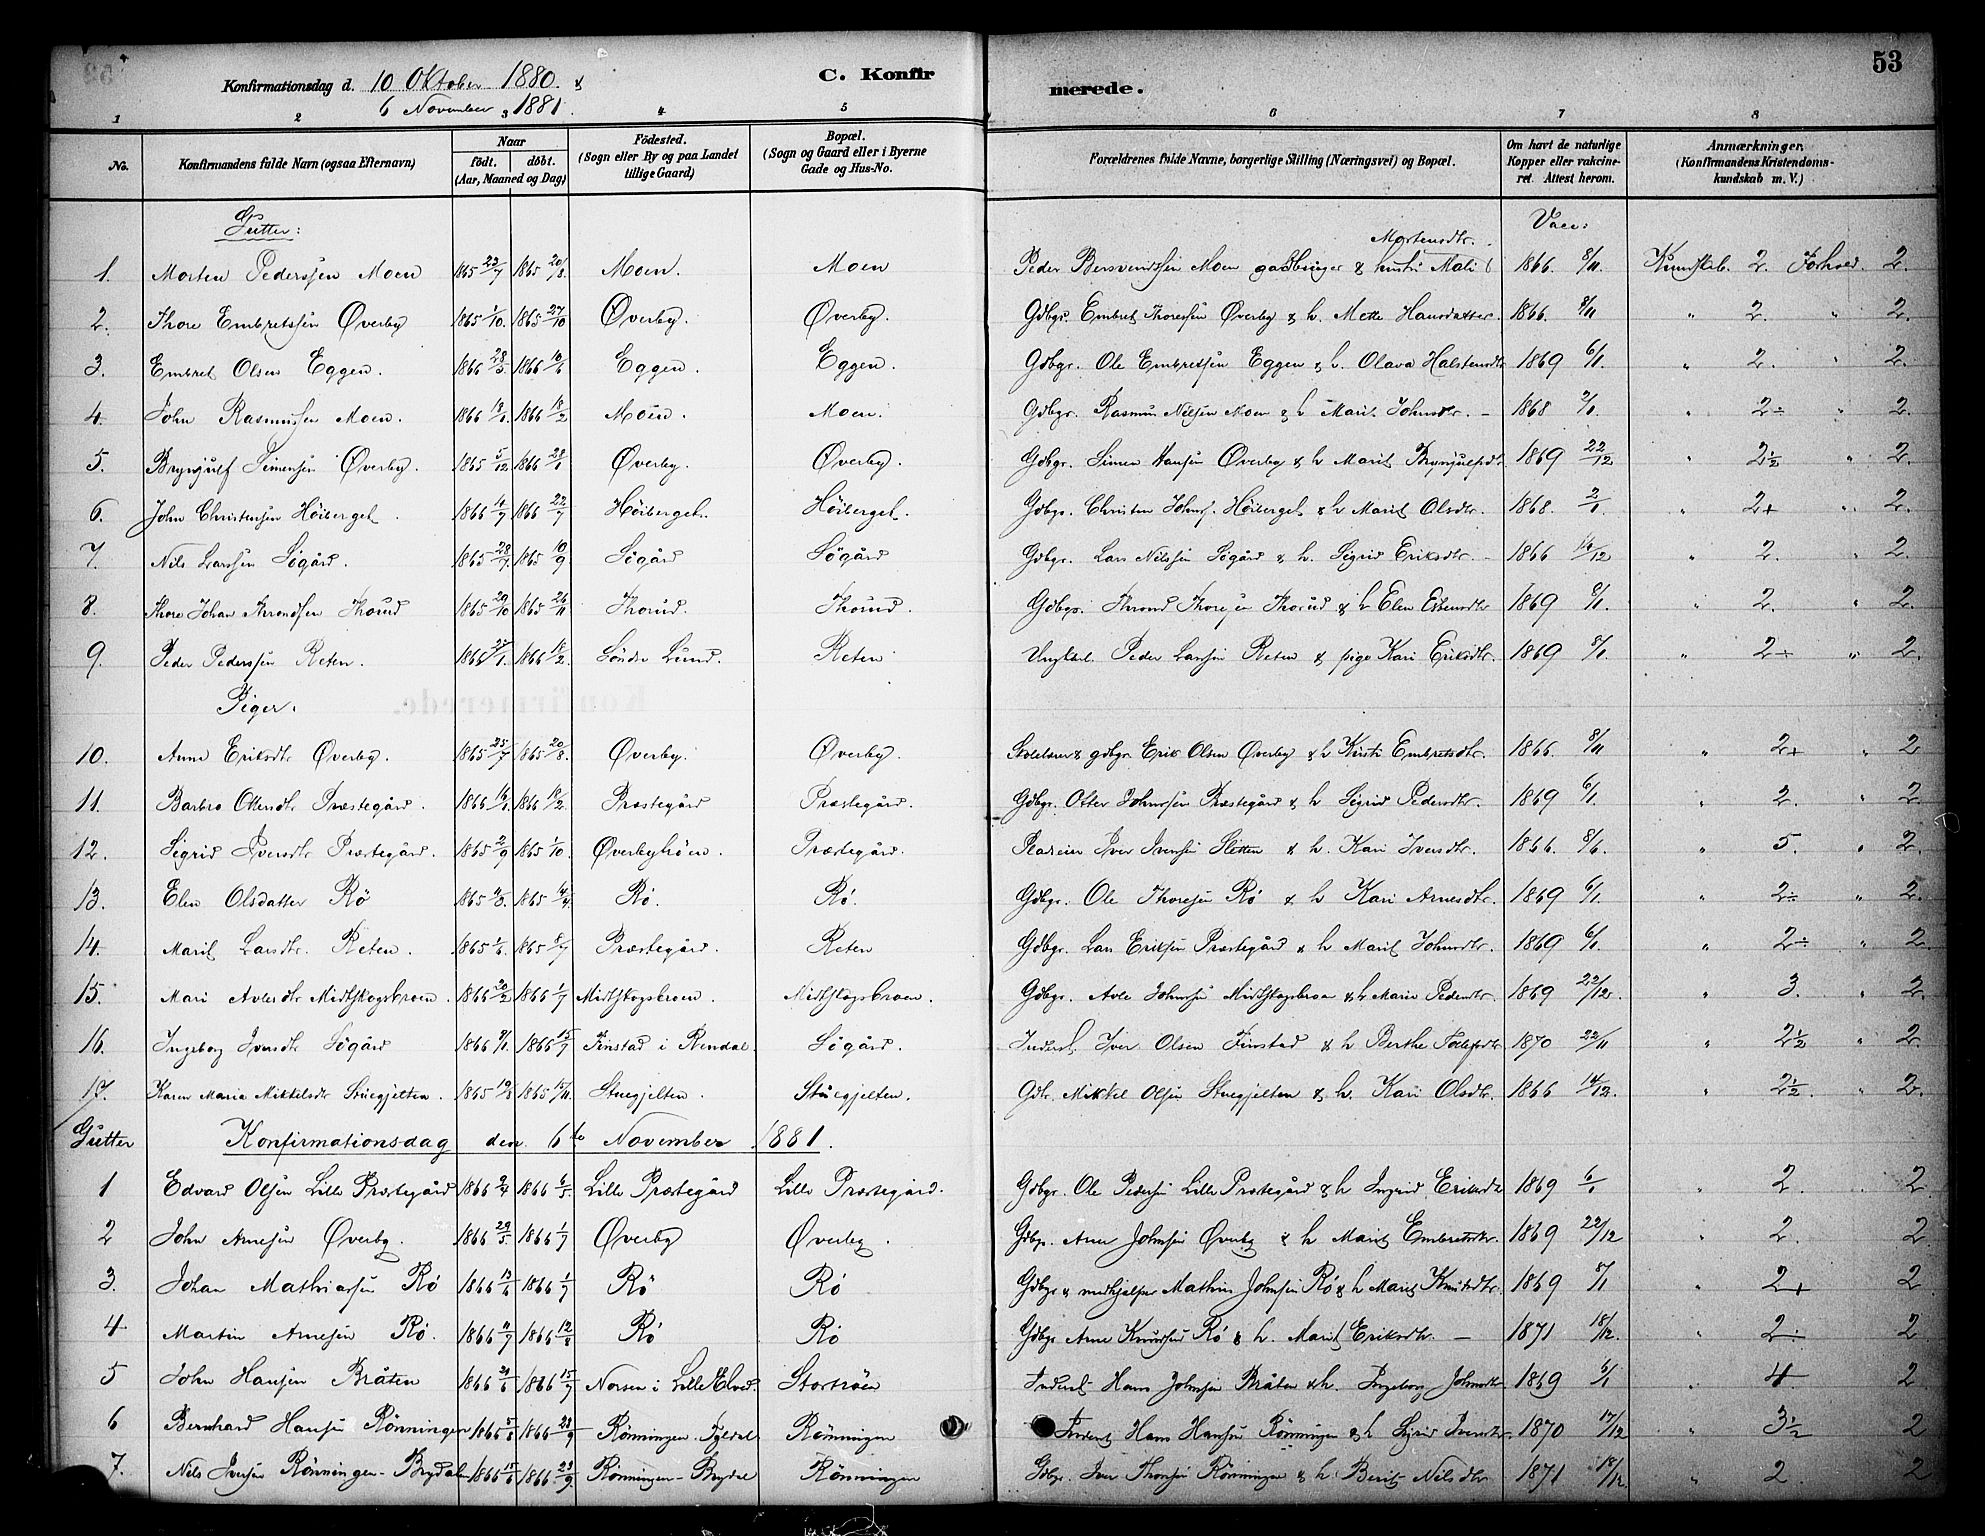 53
Konfirmationsdag d. 10 Oktober 1880 &
6 November 1881.
C. Konfirmerede.
1 2 3 4 5 6 7 8
No. Konfirmandens fulde Navn (ogsaa Efternavn) Naar födt. döbt. (Aar, Maaned og Dag) Födested. (Sogn eller By og paa Landet tillige Gaard) Bopæl. (Sogn og Gaard eller i Byerne Gade og Hus-No. Forældrenes fulde Navne, borgerlige Stilling (Næringsvei) og Bopæl. Om havt de naturlige Kopper eller vakcineret. Attest herom. Anmærkninger. (Konfirmandens Kristendomskundskab m. V.)
Gutter: Vacc:
Mortensdtr.
1. Morten Pederssen Moen 1865 23/7 1865 20/8. Moen. Moen Peder Bersvendssen Moen gaardbruger & hustru Mali 1866. 8/11. Kundskab. 2. Forhold. 2.
2. Thore Embretssen Øverby 1865 1/10. 1865 29/10 Øverby. Øverby. Gdbgr. Embret Thoressen Øverby & h. Mette Hansdatter. 1866. 8/11 " 2. " 2.
3. Embret Olsen Eggen. 1866 28/3. 1866 Eggen. Eggen. Gdbgr. Ole Embretssen Eggen & h. Olava Halstensdtr 1869 6/1. " 2. " 2.
4. John Rasmussen Moen. 1866 1866 18/2 Moen. Moen. Gdbgr. Rasmus Nilsen Moen & h Marit Johnsdtr. – 1868 2/1. " 2÷ " 2.
5. Brynjulf Simensen Øverby. 1865 5/12 1866 28/1 Øverby. Øverby. Gdbgr. Simen Hansen Øverby & h Marit Brynjulfsdtr 1869 22/12 " 2½ " 2.
6. John Christensen Höiberget. 1866 1866 22/7 Höiberget. Höiberget. Gdbgr. Christen Johns. Höiberget & h Marit Olsdtr. 1868. 2/1 " 2+ " 2.
7. Nils Larssen Sögård. 1865 28/7 1865 10/9 Sögård Sögård Gdbgr. Lars Nilssen Sögård & h. Sigrid Eriksdtr. – 1866 " 2. " 2.
8. Thore Johan Throndsen Thorud 1865 29/10 1865 26/11 Thorud. Thorud. Gdbgr. Thrond Thoresen Thorud & h Elen Estensdtr 1869 8/1. " 2. " 2.
9. Peder Pederssen Reten. 1866 1866 18/2. Söndre Lund. Reten Ungkarl Peder Larssen Reten & pige Kari Eriksdtr. 1869 8/1. " 2÷ " 2.
Piger.
10. Anne Eriksdtr Øverby. 1865 25/7 1865 20/8. Øverby. Øverby. Skolelærer & gdbgr. Erik Olsen Øverby & h Kirsti Embretsdtr. 1866. 8/11 " 2+ " 2
11. Barbro Ottersdtr Præstegård. 1866 1866 18/2. Præstegård Præstegård. Gdbgr. Otter Johnssen Præstegård & h Sigrid Pedersdtr. 1869 6/1. " 2. " 2.
12. Sigrid Iversdtr Præstegård. 1865 2/9 1865 1/10. Øverbyhöen. Præstegård. Iver Iversen Sletten & h. Kari Iversdtr. 1866. 8/6. " 5. " 2.
13. Elen Olsdatter Rö 1865 1865 14/4. Rö. Rö. Gdbgr. Ole Thoresen Rö & h Kari Arnesdtr. 1869 6/1 " 2÷ " 2.
14. Marit Larsdtr. Reten. 1865 1/6. 1865 8/7 Præstegård. Reten Gdbgr. Lars Eriksen Præstegård & h Marit Johnsdtr. 1869 6/1 " 2÷ " 2.
15. Mari Avlesdtr Midtskogsbroen. 1866 20/2 1866 1/7 Midtskogsbroen. Midtskogsbroen. Gdbgr. Avle Johnsen Midtskogsbroen & h Marie Pedersdtr. 1869 22/12. " 3. " 2.
16. Ingeborg Iversdtr Sögård 1866 9/1 1866 15/7 Finstad i Rendal. Sögård. Inderst Iver Olsen Finstad & h Berthe 1870 22/11 " 2½ " 2.
17. Karen Maria Mikkelsdtr Stuegjelten. 1865 19/8 1865 15/11. Stuegjelten. Stuegjelten. Gdbr. Mikkel Olsen Stuegjelten & h. Kari Olsdtr. 1866 14/12. " 2½. " 2.
Gutter Konfirmationsdag den 6te November 1881.
1 Edvard Olsen Lille Præstegård 1866 2/4 1866 6/5. Lille Præstegård Lille Præstegård. Gdbgr. Ole Pedersen Lille Præstegård & h Ingrid Eriksdtr 1869 6/1 " 2. " 2
2 John Arnesen Øverby. 1866 29/5. 1866 1/7 Øverby Øverby. Gdbgr. Arne Johnsen Øverby & h Marit Embretsdtr. 1869 22/12 " 2. 2.
3. Johan Mathiassen Rö 1866 13/6 1866 1/7 Rö Rö Gdbgr & medhjelper Mathias Johnsen Rö & h Marit Knutsdtr. 1869 8/1 " 2+ 2
4 Martin Arnesen Rö. 1866 11/7 1866 12/8 Rö Rö Gdbgr Arne Knudsen Rö & h. Marit Eriksdtr. – 1871 18/12. " 2÷ 2
5 John Hansen Bråten 1866 21/6 1866 15/7 Norsen i Lille Elved. Stortröen Inderst Hans Johnsen Bråten & h. Ingeborg Johnsdtr 1869 6/1 " 4 2
6 Bernhard Hansen Rönningen 1866 5/8 1866 23/9 Rönningen. Tyldal Rönningen Inderst Hans Hansen Rönningen & h Sigrid Iversdtr. 1870 17/12 " 3½ " 2
7. Nils Iversen Rönningen-Brydalen 1866 15/6 1866 23/9. Rönningen-Brydal Rönningen Gdbgr. Iver Thorsen Rönningen & h. Berit Nilsdtr 1871 18/12. " 2 " 2